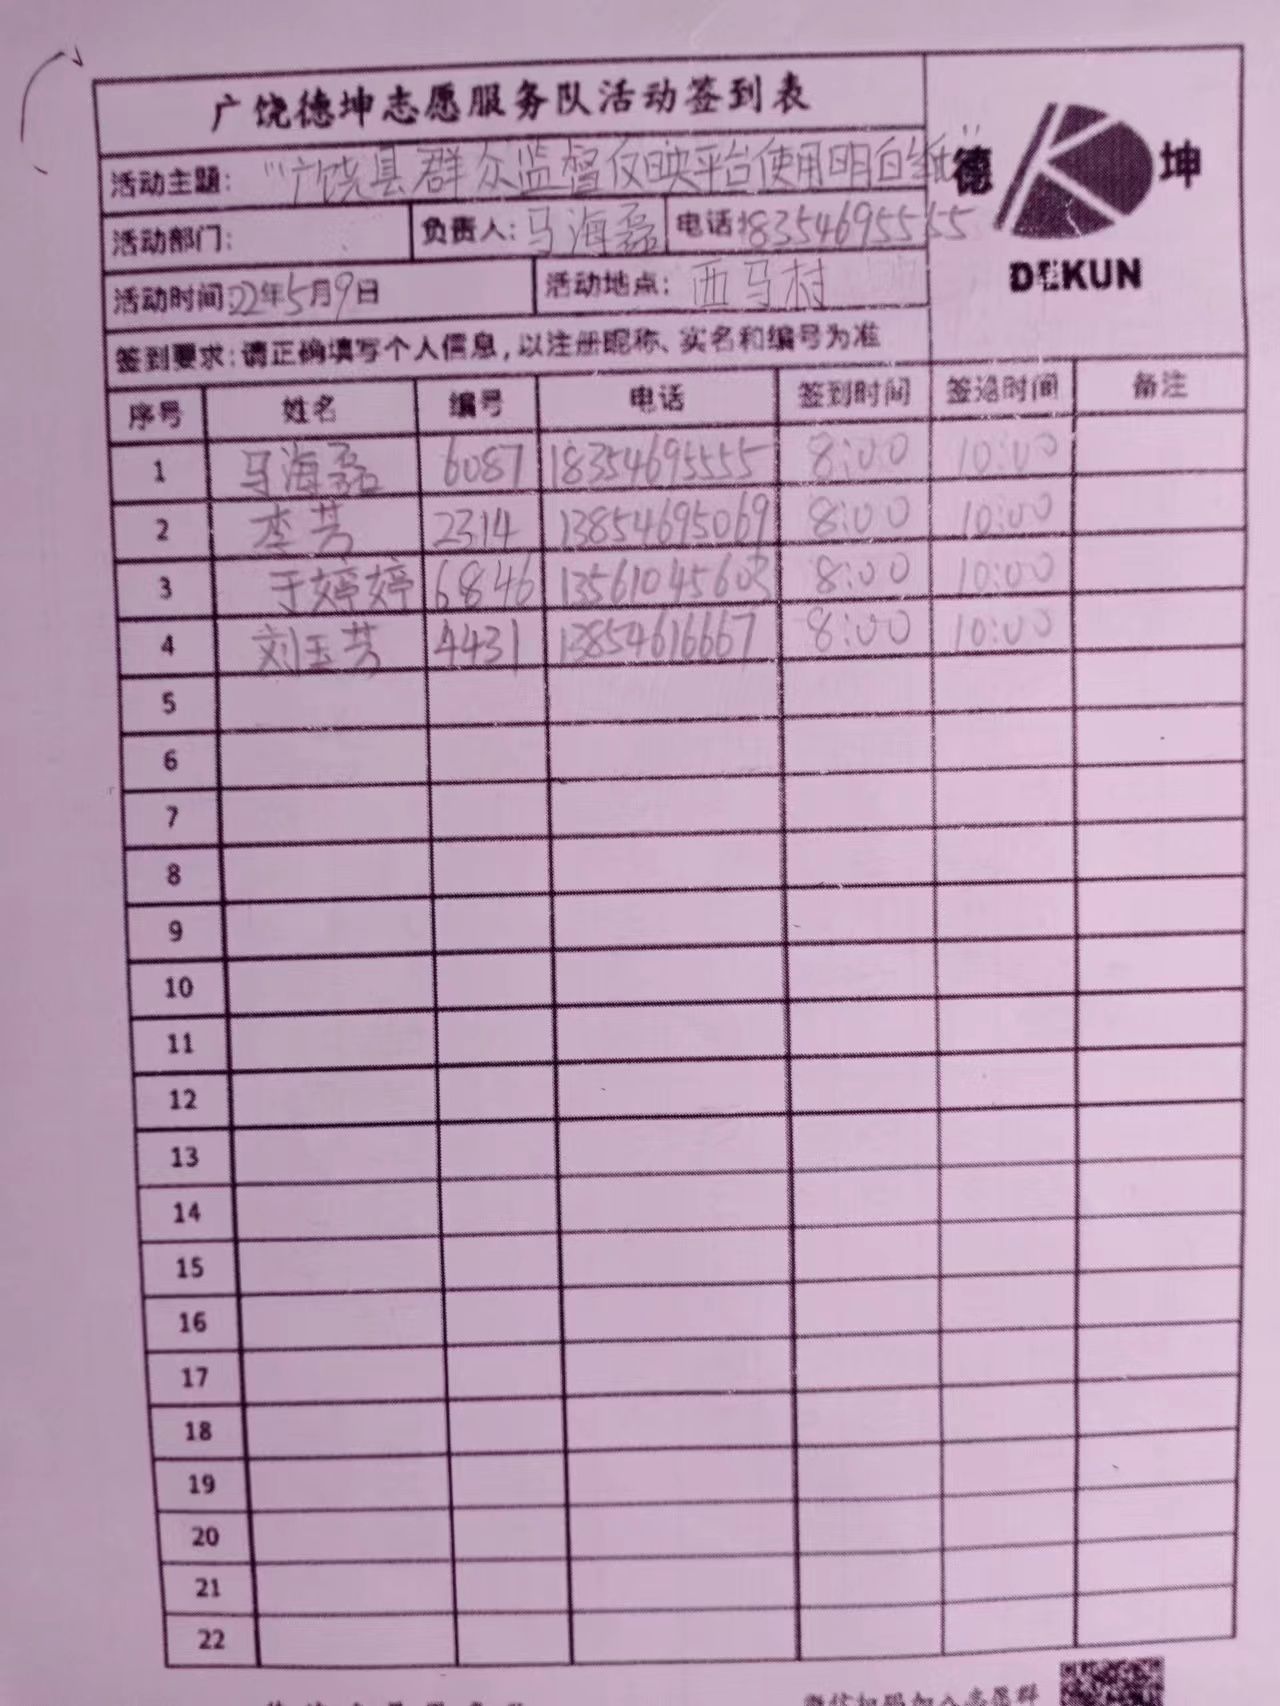 广饶德坤志愿服务队活动签到表
活动主题: "广饶县群众监督反映平台使用明白纸"
德 坤
DEKUN
活动部门: 负责人: 马海磊 电话: 18354695555
活动时间 22年5月9日 活动地点: 西马村
签到要求:请正确填写个人信息,以注册昵称、实名和编号为准
序号 姓名 编号 电话 签到时间 签退时间 备注
1 马海磊 6087 18354695555 8:00 10:00
2 李芳 2314 13854695069 8:00 10:00
3 于婷婷 6846 13561045603 8:00 10:00
4 刘玉芳 4431 13854616667 8:00 10:00
5
6
7
8
9
10
11
12
13
14
15
16
17
18
19
20
21
22
微信扫码加入志愿群